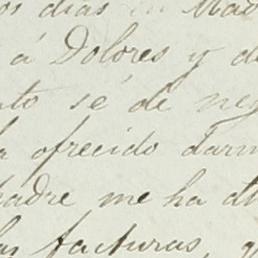 os dias en Mad
á Dolores y d
nto sé de neg
a ofrecido darm
padre me ha d
las facturas, q